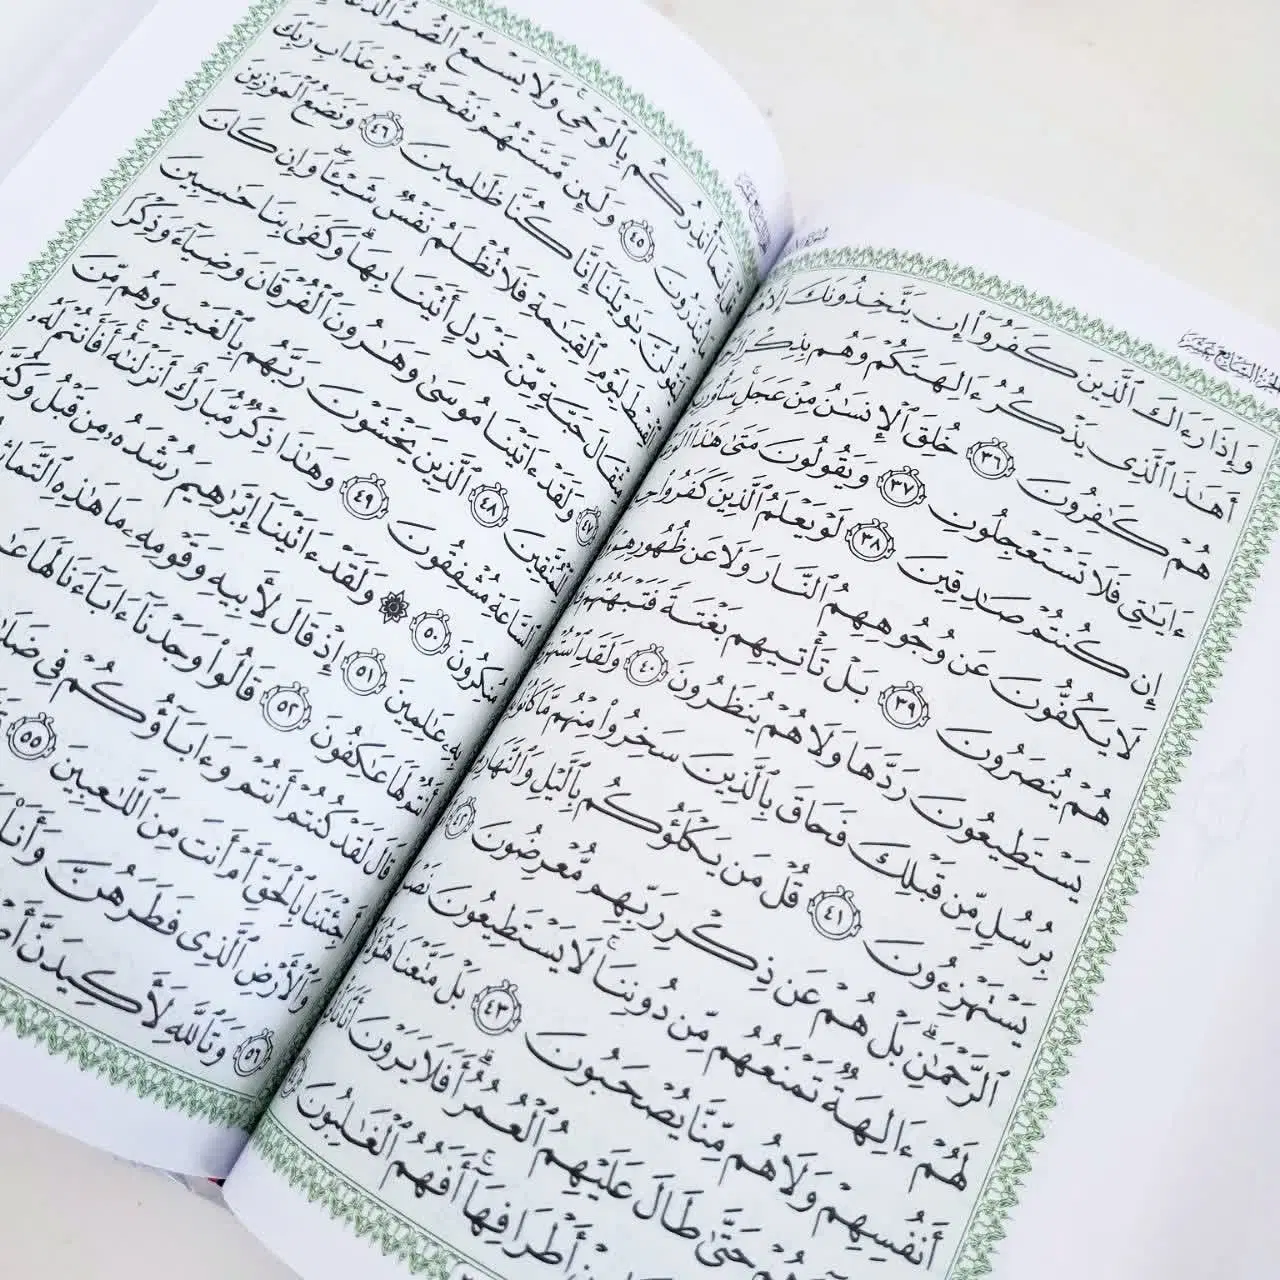 الجزء السابع عشر
وَإِذَا رَءَاكَ ٱلَّذِينَ كَفَرُوٓا۟ إِن يَتَّخِذُونَكَ إِلَّا
أَهَـٰذَا ٱلَّذِى يَذْكُرُ ءَالِهَتَكُمْ وَهُم بِذِكْرِ
هُمْ كَـٰفِرُونَ ٣٦ خُلِقَ ٱلْإِنسَـٰنُ مِنْ عَجَلٍ سَأُو۟رِيكُمْ
ءَايَـٰتِى فَلَا تَسْتَعْجِلُونِ ٣٧ وَيَقُولُونَ مَتَىٰ هَـٰذَا ٱلْوَعْدُ
إِن كُنتُمْ صَـٰدِقِينَ ٣٨ لَوْ يَعْلَمُ ٱلَّذِينَ كَفَرُوا۟ حِينَ
لَا يَكُفُّونَ عَن وُجُوهِهِمُ ٱلنَّارَ وَلَا عَن ظُهُورِهِمْ
هُمْ يُنصَرُونَ ٣٩ بَلْ تَأْتِيهِم بَغْتَةً فَتَبْهَتُهُمْ
يَسْتَطِيعُونَ رَدَّهَا وَلَا هُمْ يُنظَرُونَ ٤٠ وَلَقَدِ ٱسْتُهْزِئَ
بِرُسُلٍ مِّن قَبْلِكَ فَحَاقَ بِٱلَّذِينَ سَخِرُوا۟ مِنْهُم مَّا كَانُوا۟
يَسْتَهْزِءُونَ ٤١ قُلْ مَن يَكْلَؤُكُم بِٱلَّيْلِ وَٱلنَّهَارِ
ٱلرَّحْمَـٰنِ ۗ بَلْ هُمْ عَن ذِكْرِ رَبِّهِم مُّعْرِضُونَ ٤٢
لَهُمْ ءَالِهَةٌ تَمْنَعُهُم مِّن دُونِنَا ۚ لَا يَسْتَطِيعُونَ نَصْرَ
أَنفُسِهِمْ وَلَا هُم مِّنَّا يُصْحَبُونَ ٤٣ بَلْ مَتَّعْنَا هَـٰٓؤُلَآءِ
حَتَّىٰ طَالَ عَلَيْهِمُ ٱلْعُمُرُ ۗ أَفَلَا يَرَوْنَ أَنَّا نَأْتِى
أَطْرَافِهَآ ۚ أَفَهُمُ ٱلْغَـٰلِبُونَ
أُنذِرُكُم بِٱلْوَحْىِ ۚ وَلَا يَسْمَعُ ٱلصُّمُّ ٱلدُّعَآءَ
مَا يُنذَرُونَ ٤٥ وَلَئِن مَّسَّتْهُمْ نَفْحَةٌ مِّنْ عَذَابِ رَبِّكَ
لَيَقُولُنَّ يَـٰوَيْلَنَآ إِنَّا كُنَّا ظَـٰلِمِينَ ٤٦ وَنَضَعُ ٱلْمَوَٰزِينَ
ٱلْقِسْطَ لِيَوْمِ ٱلْقِيَـٰمَةِ فَلَا تُظْلَمُ نَفْسٌ شَيْـًٔا ۖ وَإِن كَانَ
مِثْقَالَ حَبَّةٍ مِّنْ خَرْدَلٍ أَتَيْنَا بِهَا ۗ وَكَفَىٰ بِنَا حَـٰسِبِينَ
٤٧ وَلَقَدْ ءَاتَيْنَا مُوسَىٰ وَهَـٰرُونَ ٱلْفُرْقَانَ وَضِيَآءً وَذِكْرًا
لِّلْمُتَّقِينَ ٤٨ ٱلَّذِينَ يَخْشَوْنَ رَبَّهُم بِٱلْغَيْبِ وَهُم مِّنَ
ٱلسَّاعَةِ مُشْفِقُونَ ٤٩ وَهَـٰذَا ذِكْرٌ مُّبَارَكٌ أَنزَلْنَـٰهُ ۚ أَفَأَنتُمْ لَهُۥ
مُنكِرُونَ ٥٠ ۞ وَلَقَدْ ءَاتَيْنَآ إِبْرَٰهِيمَ رُشْدَهُۥ مِن قَبْلُ وَكُنَّا
بِهِۦ عَـٰلِمِينَ ٥١ إِذْ قَالَ لِأَبِيهِ وَقَوْمِهِۦ مَا هَـٰذِهِ ٱلتَّمَاثِيلُ
أَنتُمْ لَهَا عَـٰكِفُونَ ٥٢ قَالُوا۟ وَجَدْنَآ ءَابَآءَنَا لَهَا
قَالَ لَقَدْ كُنتُمْ أَنتُمْ وَءَابَآؤُكُمْ فِى ضَلَـٰلٍ
أَجِئْتَنَا بِٱلْحَقِّ أَمْ أَنتَ مِنَ ٱللَّـٰعِبِينَ ٥٥
وَٱلْأَرْضِ ٱلَّذِى فَطَرَهُنَّ وَأَنَا۠
٥٦ وَتَٱللَّهِ لَأَكِيدَنَّ